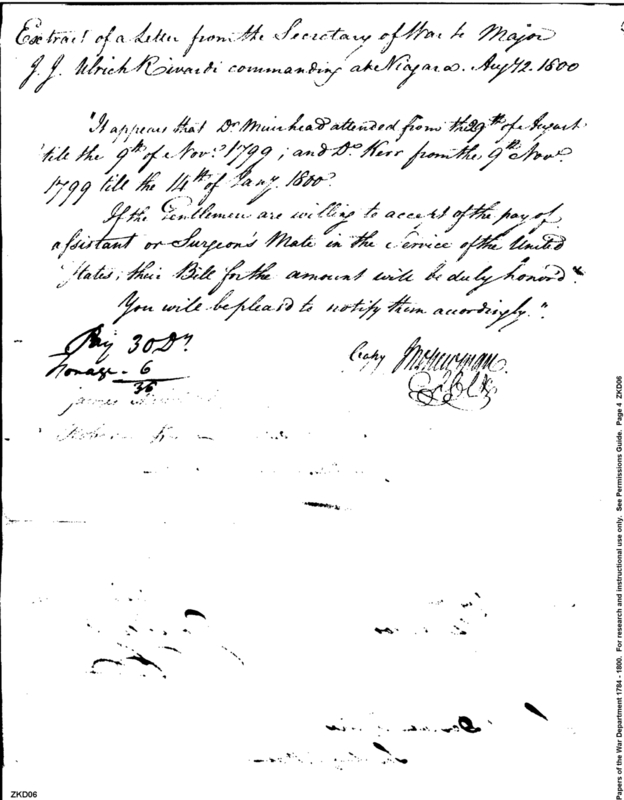 Extract of a Letter from the Secretary of War to Major
J. J. Ulrich Rivardi commanding at Niagara. Augt 12. 1800
"It appears that Dr Muirhead attended from the 29th of August
'till the 9th of Novr 1799; and Dr Kerr from the 9th Novr
1799 till the 14th of Jany 1800.
If the Gentlemen are willing to accept of the pay of
assistant or Surgeon's Mate in the Service of the United
States, their Bill for the amount will be duly honor'd
You will be pleas'd to notify them accordingly."
Pay 30 Drs
Forage - 6
36
Copy
James
Papers of the War Department 1784 - 1800. For research and instructional use only. See Permissions Guide. Page 4 ZKD06
ZKD06